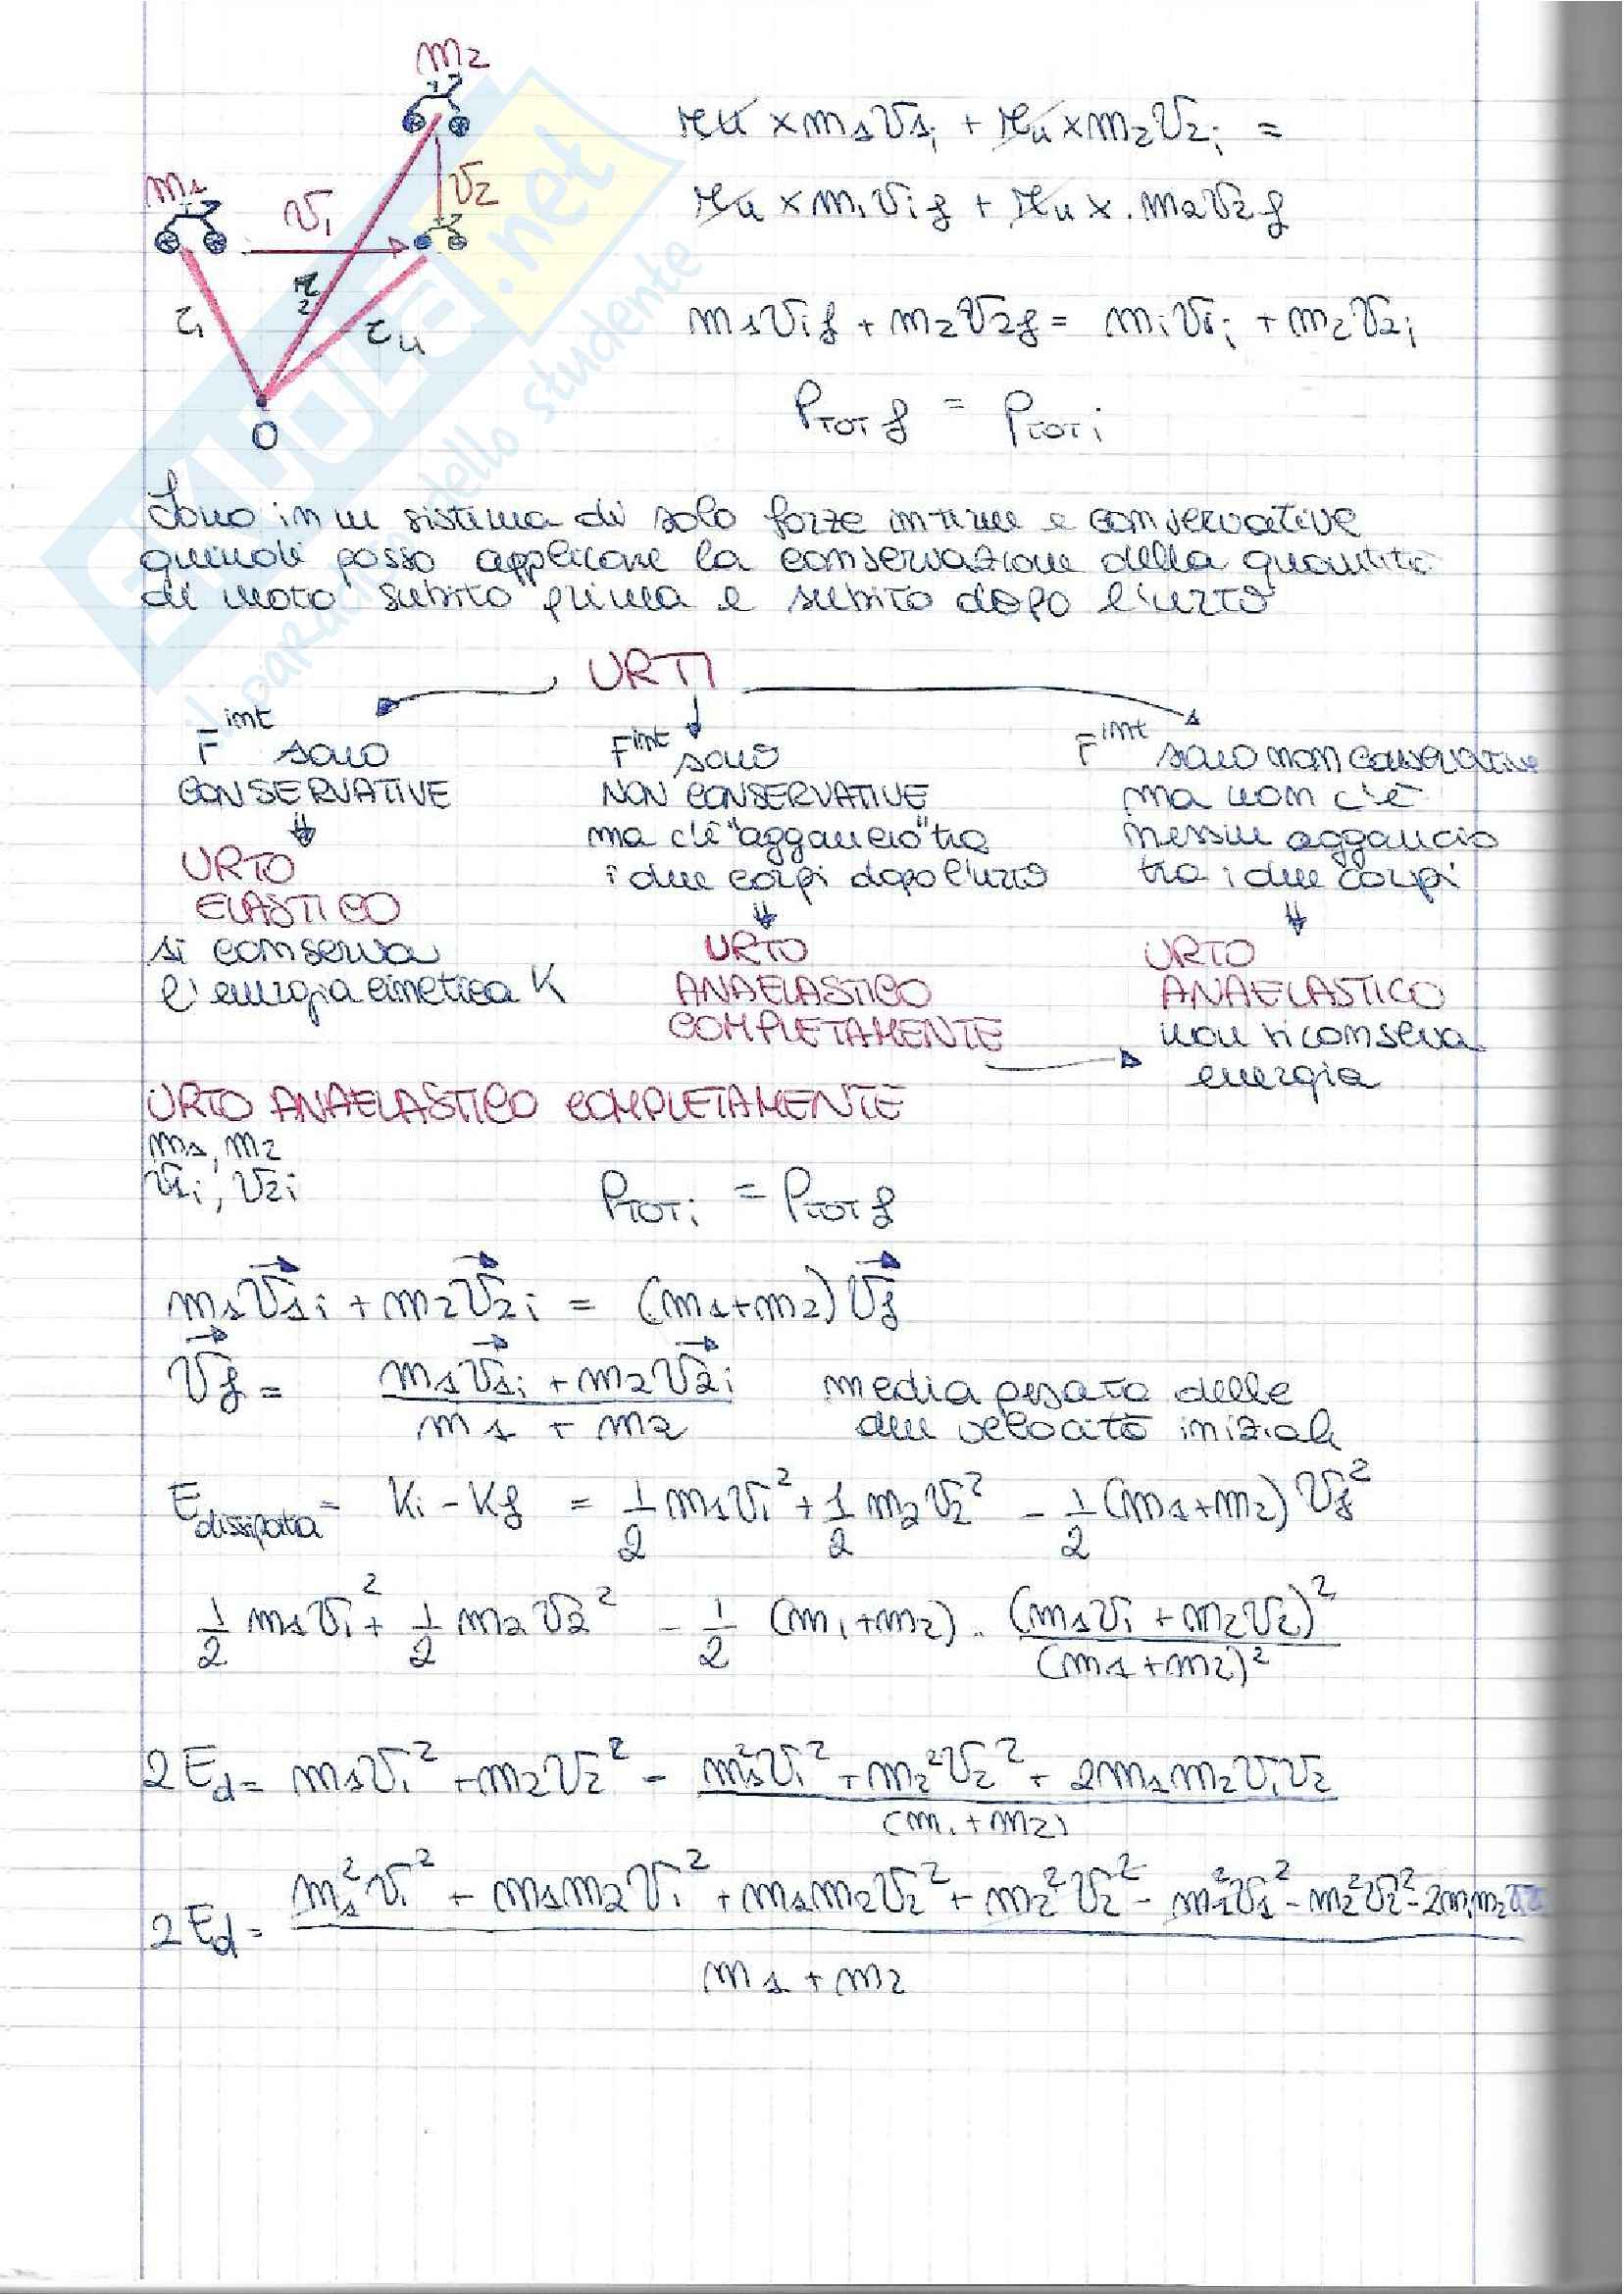 m2
m1
v1
v2
r1
r2
ru
O
ru × m1v1i + ru × m2v2i =
ru × m1v1f + ru × . m2v2f
m1v1f + m2v2f = m1v1i + m2v2i
PTOT f = PTOT i
Sono in un sistema di solo forze interne e conservative
quindi posso applicare la conservazione della quantità
di moto subito prima e subito dopo l'urto
URTI
F̄ int sono
CONSERVATIVE
⇓
URTO
ELASTICO
si conserva
l'energia cinetica K
F int sono
NON CONSERVATIVE
ma c'è "aggancio" tra
i due corpi dopo l'urto
⇓
URTO
ANAELASTICO
COMPLETAMENTE
F̄ int sono non conservative
ma non c'è
nessun aggancio
tra i due corpi
⇓
URTO
ANAELASTICO
non si conserva
energia
URTO ANAELASTICO COMPLETAMENTE
m1, m2
v1i, v2i
PTOT i = PTOT f
m1v⃗1i + m2v⃗2i = (m1+m2)v⃗f
v⃗f = (m1v⃗1i + m2v⃗2i) / (m1 + m2) media pesata delle
due velocità iniziali
Edissipata = Ki - Kf = 1/2 m1v1² + 1/2 m2v2² - 1/2 (m1+m2) vf²
1/2 m1v1² + 1/2 m2v2² - 1/2 (m1+m2) . (m1v1 + m2v2)² / (m1+m2)²
2Ed = m1v1² + m2v2² - (m1²v1² + m2²v2² + 2m1m2v1v2) / (m1+m2)
2Ed = (m1²v1² + m1m2v1² + m1m2v2² + m2²v2² - m1²v1² - m2²v2² - 2m1m2v1v2) / (m1 + m2)
SKUOLA.net
il paradiso dello studente